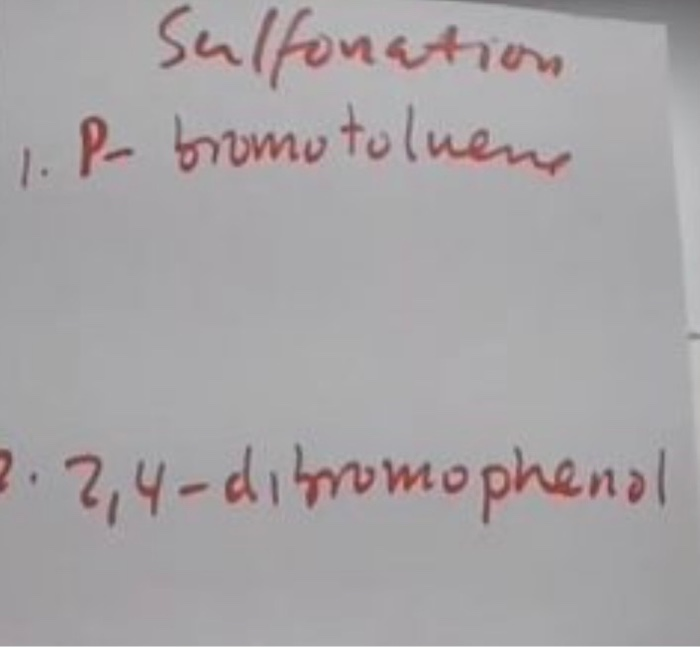 Sulfonation
1. P- bromotoluene
2. 2,4-dibromophenol